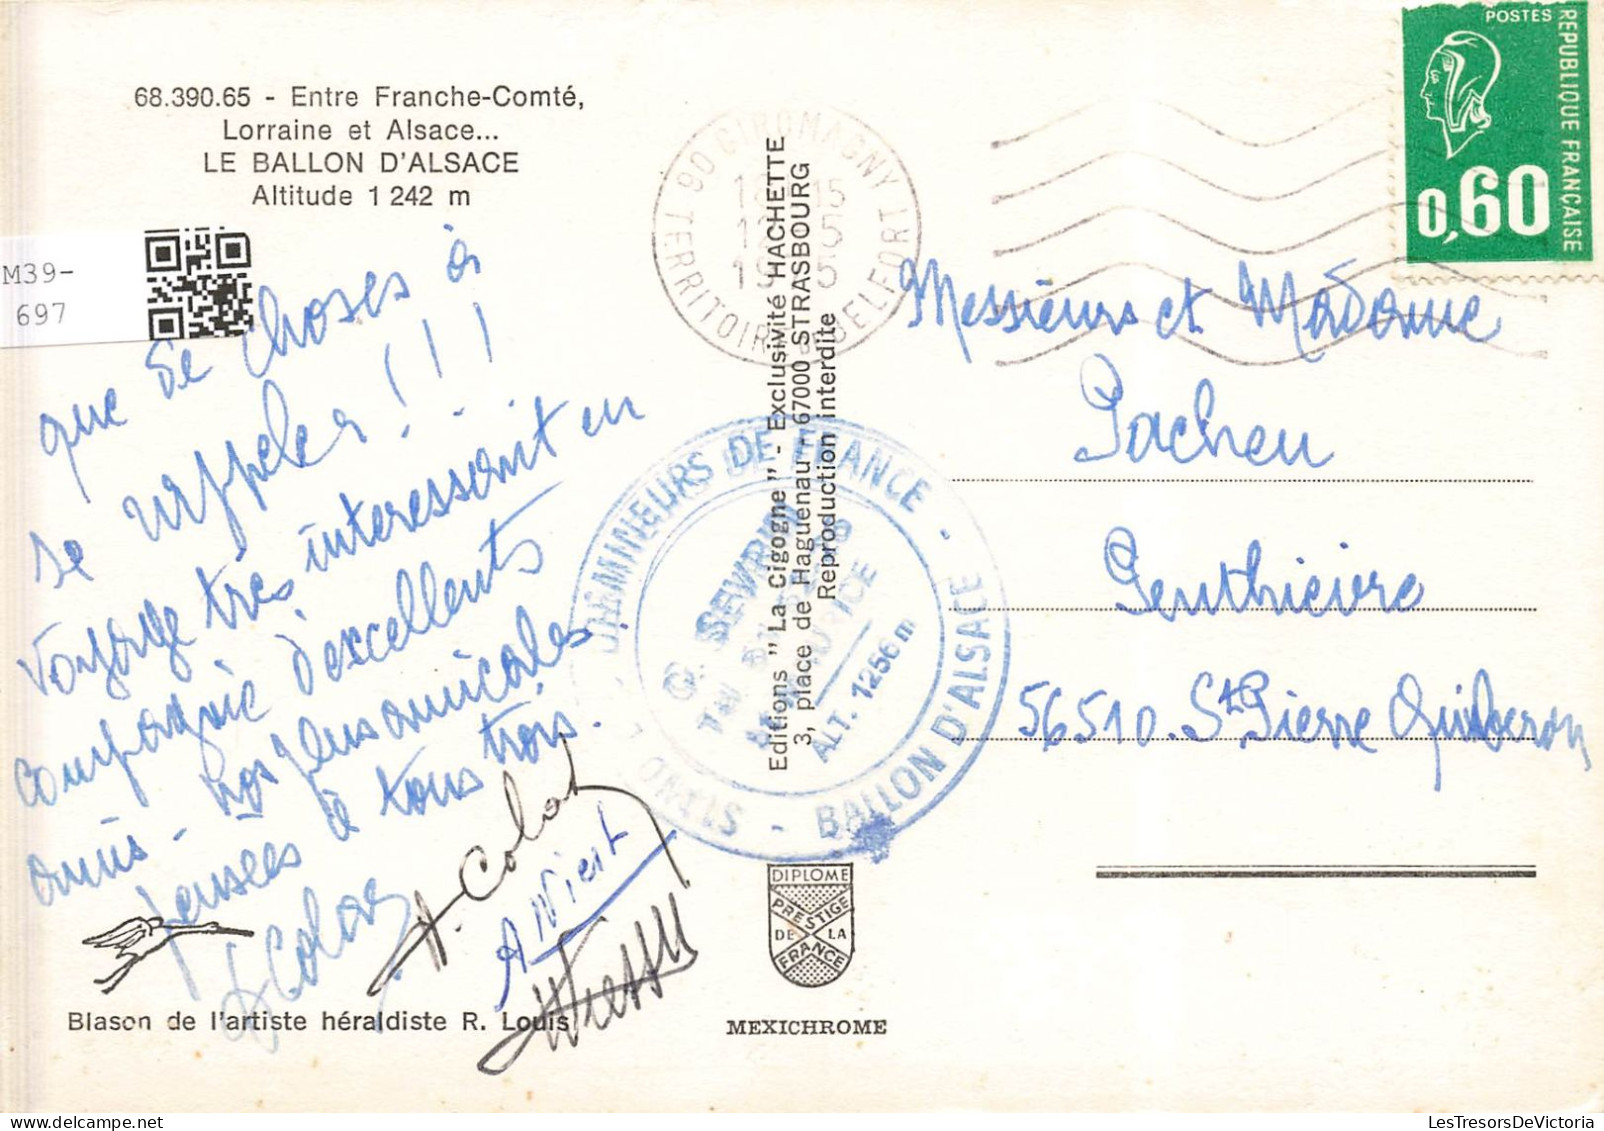 68.390.65 - Entre Franche-Comté,
Lorraine et Alsace...
LE BALLON D'ALSACE
Altitude 1 242 m
M39-
697
que de choses à
se rappeler!!!
Voyage très interessant en
compagnie d'excellents
amis - nos plus amicales
pensées à tous trois.
Colas
A. Colas
A Viest
Blason de l'artiste héraldiste R. Louis
90 GIROMAGNY
TERRITOIRE DE BELFORT
Editions "La Cigogne" - Exclusivité HACHETTE
3, place de Haguenau - 67000 STRASBOURG
Reproduction interdite
DE FRANCE - BALLON D'ALSACE -
SEVRIN
ALT. 1256 m
DIPLOME
PRESTIGE
DE LA
FRANCE
MEXICHROME
POSTES
REPUBLIQUE FRANÇAISE
0,60
Messieurs et Madame
Pacheu
Penthièvre
56510. St Pierre Quiberon
LesTresorsDeVictoria.com